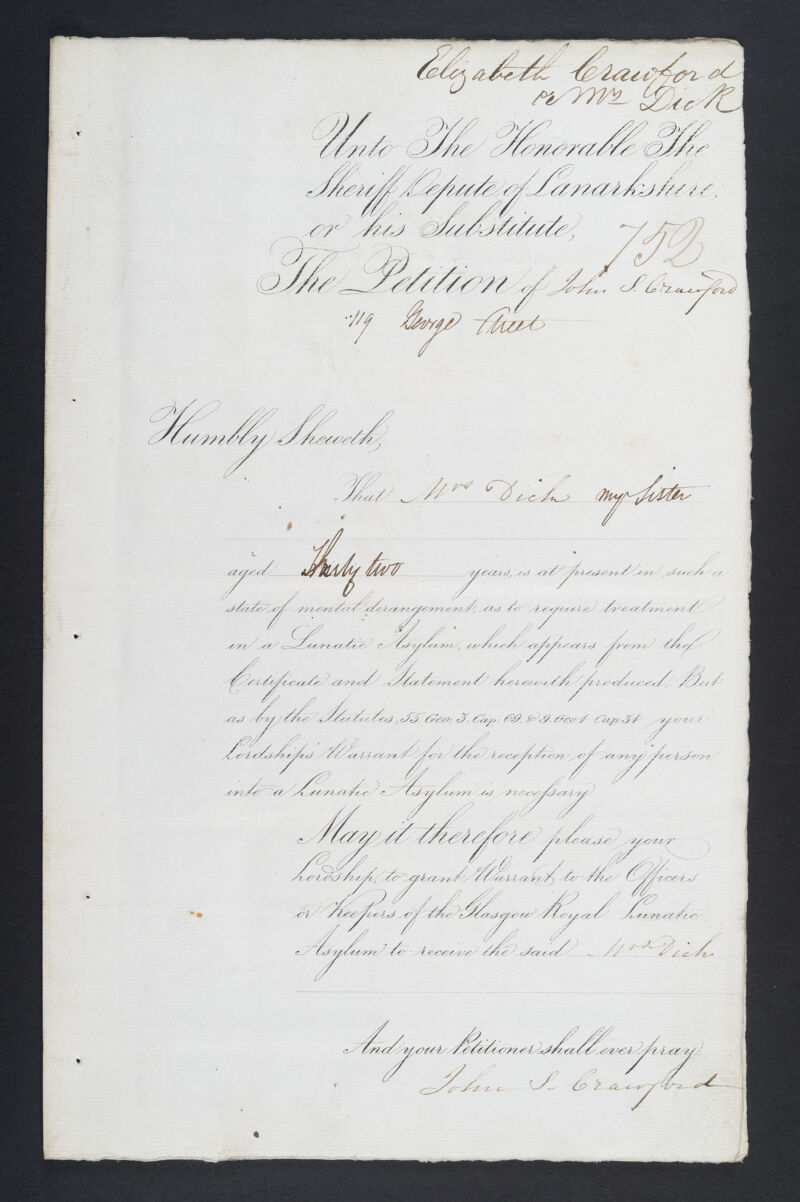 Elizabeth Crawford
or Mrs Dick
Unto The Honorable The
Sheriff Depute of Lanarkshire,
or his Substitute,
752
The Petition of John S. Crawford
119 George Street
Humbly Sheweth,
That Mrs Dick my Sister
aged Thirty two years, is at present in such a
state of mental derangement, as to require treatment
in a Lunatic Asylum, which appears from the
Certificate and Statement herewith produced. But
as by the Statutes, 55 Geo: 3. Cap: 69. & 9. Geo 4. Cap 34 your
Lordship's Warrant for the reception of any person
into a Lunatic Asylum is necessary
May it therefore please your
Lordship, to grant Warrant, to the Officers
or Keepers of the Glasgow Royal Lunatic
Asylum to receive the said Mrs Dick
And your Petitioner shall ever pray
John S. Crawford